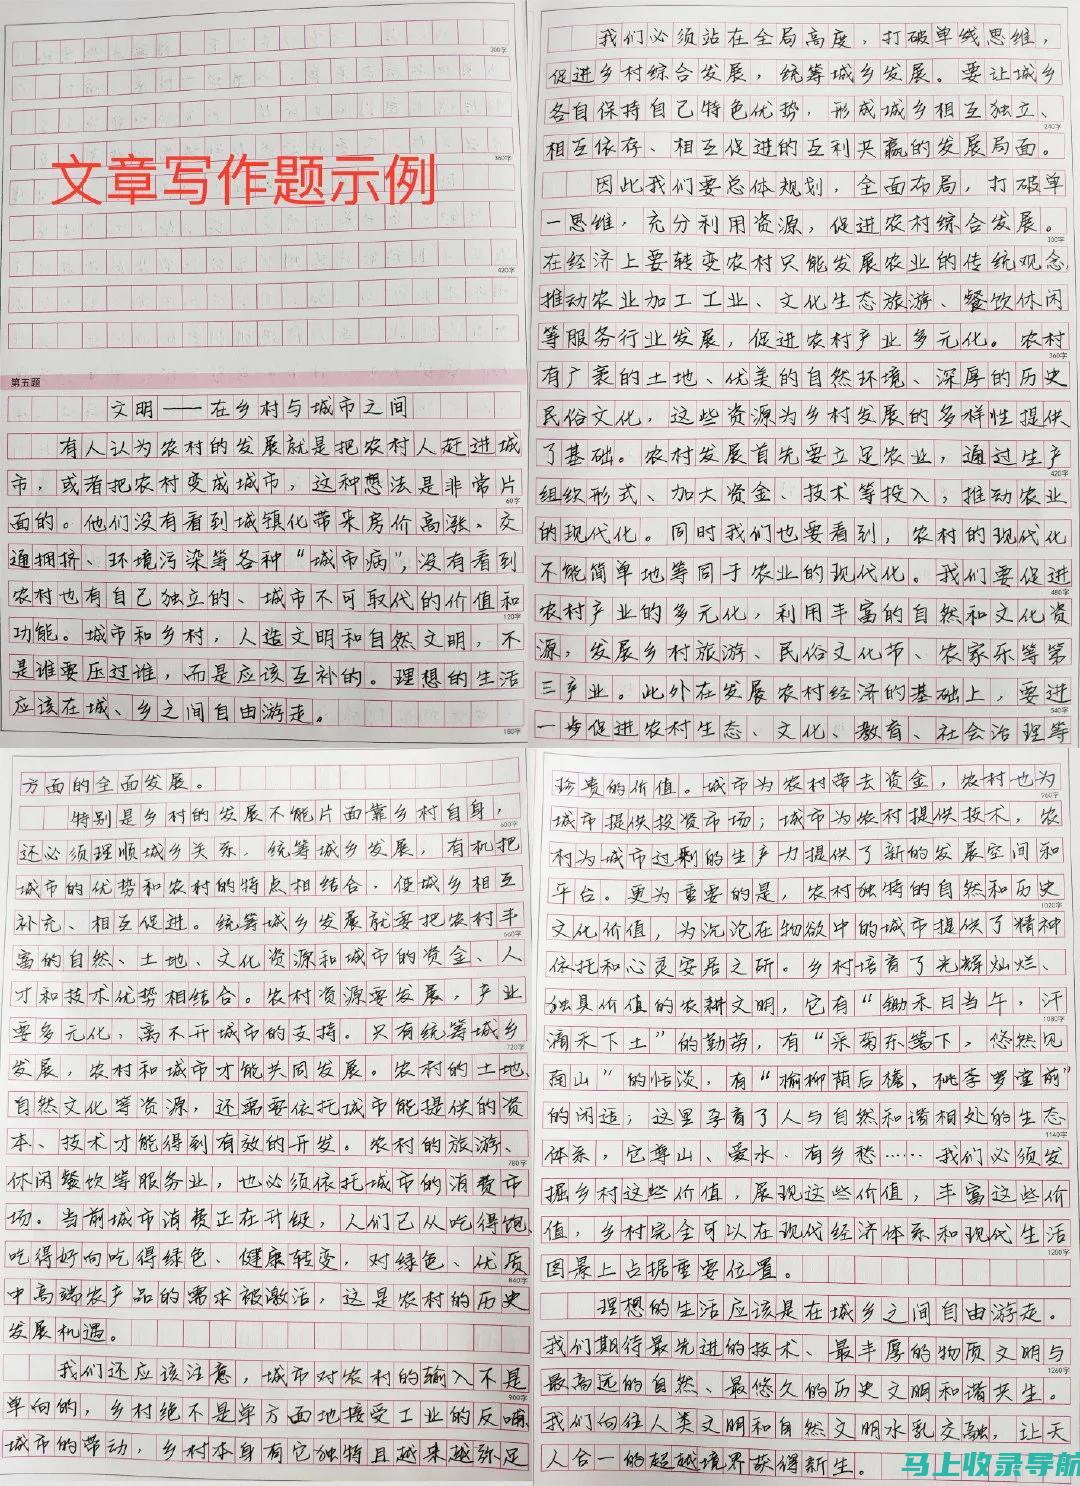 300字
360字
文章写作题示例
420字
第五题
文明——在乡村与城市之间
有人认为农村的发展就是把农村人赶进城
市，或者把农村变成城市，这种想法是非常片
60字
面的。他们没有看到城镇化带来房价高涨、交
通拥挤、环境污染等各种“城市病”，没有看到
农村也有自己独立的、城市不可取代的价值和
120字
功能。城市和乡村，人造文明和自然文明，不
是谁要压过谁，而是应该互补的。理想的生活
应该在城、乡之间自由游走。
180字
我们必须站在全局高度，打破单线思维，
促进乡村综合发展，统筹城乡发展。要让城乡
各自保持自己特色优势，形成城乡相互独立、
240字
相互依存、相互促进的互利共赢的发展局面。
因此我们要总体规划，全面布局，打破单
一思维，充分利用资源，促进农村综合发展。
300字
在经济上要转变农村只能发展农业的传统观念，
推动农业加工工业、文化生态旅游、餐饮休闲
等服务行业发展，促进农村产业多元化。农村
360字
有广袤的土地、优美的自然环境、深厚的历史
民俗文化，这些资源为乡村发展的多样性提供
了基础。农村发展首先要立足农业，通过生产
420字
组织形式、加大资金、技术等投入，推动农业
的现代化。同时我们也要看到，农村的现代化
不能简单地等同于农业的现代化。我们要促进
480字
农村产业的多元化，利用丰富的自然和文化资
源，发展乡村旅游、民俗文化节、农家乐等第
三产业。此外在发展农村经济的基础上，要进
540字
一步促进农村生态、文化、教育、社会治理等
方面的全面发展。
特别是乡村的发展不能片面靠乡村自身，
600字
还必须理顺城乡关系，统筹城乡发展，有机把
城市的优势和农村的特点相结合，使城乡相互
补充、相互促进。统筹城乡发展就要把农村丰
660字
富的自然、土地、文化资源和城市的资金、人
才和技术优势相结合。农村资源要发展，产业
要多元化，离不开城市的支持。只有统筹城乡
720字
发展，农村和城市才能共同发展。农村的土地、
自然文化等资源，还需要依托城市能提供的资
本、技术才能得到有效的开发。农村的旅游、
780字
休闲餐饮等服务业，也必须依托城市的消费市
场。当前城市消费正在升级，人们已从吃得饱、
吃得好向吃得绿色、健康转变，对绿色、优质
840字
中高端农产品的需求被激活，这是农村的历史
发展机遇。
我们还应该注意，城市对农村的输入不是
900字
单向的，乡村绝不是单方面地接受工业的反哺、
城市的带动，乡村本身有它独特且越来越弥足
珍贵的价值。城市为农村带去资金，农村也为
960字
城市提供投资市场；城市为农村提供技术，农
村为城市过剩的生产力提供了新的发展空间和
平台。更为重要的是，农村独特的自然和历史
1020字
文化价值，为沉沦在物欲中的城市提供了精神
依托和心灵安居之所。乡村培育了光辉灿烂、
独具价值的农耕文明，它有“锄禾日当午，汗
1080字
滴禾下土”的勤劳，有“采菊东篱下，悠然见
南山”的恬淡，有“榆柳荫后檐，桃李罗堂前”
的闲适；这里孕育了人与自然和谐相处的生态
1140字
体系，它尊山、爱水、有乡愁……我们必须发
掘乡村这些价值，展现这些价值，丰富这些价
值，乡村完全可以在现代经济体系和现代生活
1200字
图景上占据重要位置。
理想的生活应该是在城乡之间自由游走。
我们期待最先进的技术、最丰厚的物质文明与
1260字
最高远的自然、最悠久的历史文明和谐共生。
我们向往人类文明和自然文明水乳交融，让天
人合一的超越境界获得新生。
马上收录导航